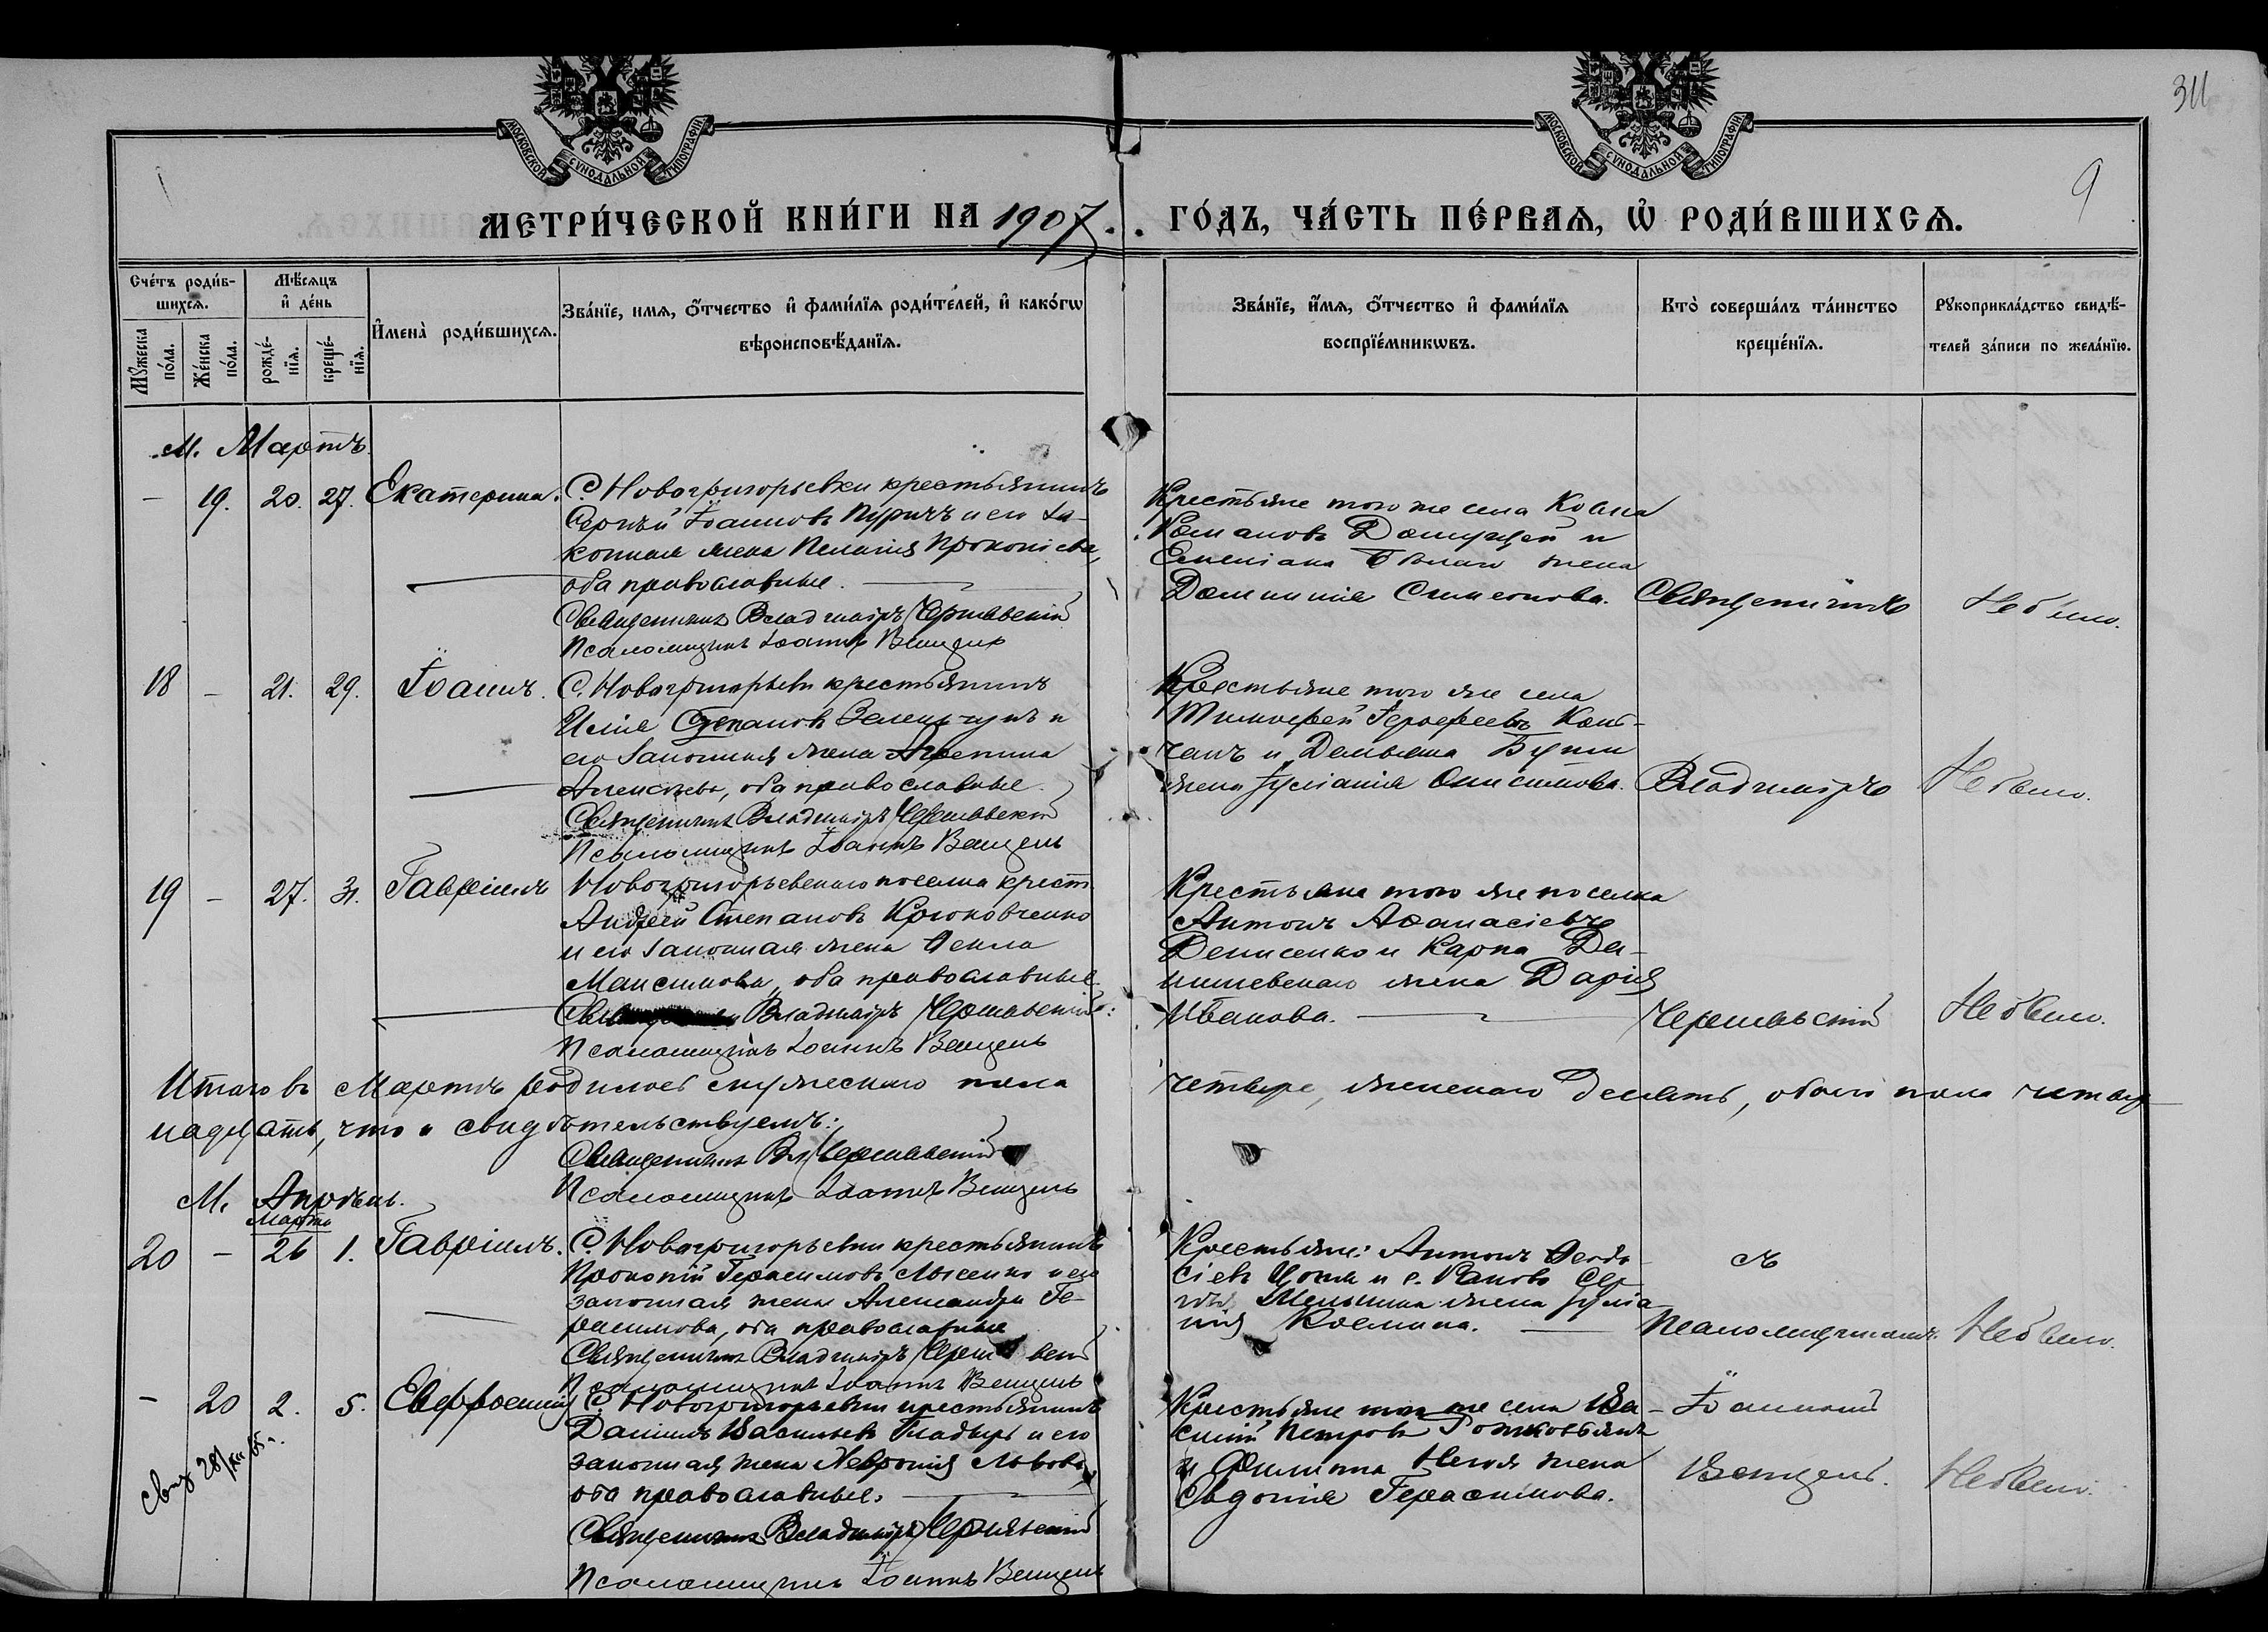 311
9
МОСКОВСКОЙ СѴНОДАЛЬНОЙ ТИПОГРАФІИ
МОСКОВСКОЙ СѴНОДАЛЬНОЙ ТИПОГРАФІИ
МЕТРИ́ЧЕСКОЙ КНИ́ГИ НА 1907. . ГО́ДЪ, ЧА́СТЬ ПЕ́РВАѦ, Ѡ҆ РОДИ́ВШИХСѦ.
Сче́тъ роди́в-
шихсѧ.
Мꙋ́жеска по́ла.
Же́нска по́ла.
Мѣ́сѧцъ
и҆ де́нь
рожде́-нїѧ.
креще́-нїѧ.
И҆мена̀ роди́вшихсѧ.
Зва́нїе, имѧ, ѻ҆́тчество и҆ фами́лїѧ роди́телей, и҆ како́гѡ
вѣроисповѣ́данїѧ.
Зва́нїе, и҆́мѧ, ѻ҆́тчество и҆ фами́лїѧ
воспрїе́мникѡвъ.
Кто̀ соверша́лъ та́инство
креще́нїѧ.
Рꙋкоприкла́дство свидѣ́-
телей за́писи по жела́нїю.
М. Мартъ.
– 19. 20. 27. Екатерина.
С. Новогригорьевки крестьянинъ
Сергѣй Іоанновъ Пуричъ и его за-
конная жена Пелагія Прокопіева,
оба православные.
Священникъ Владиміръ Чернявскій
Псаломщикъ Іоаннъ Венцель
Крестьяне того же села
Романовъ и
жена
Домникія Симеонова.
Священникъ
Не было.
18 – 21. 29. Іоаннъ.
С. Новогригорьевки крестьянинъ
Илія Степановъ и
его законная жена Агрепина
Алексѣева, оба православные.
Священникъ Владиміръ Чернявскій
Псаломщикъ Іоаннъ Венцель
Крестьяне того же села
Тимофей Іерофеевъ
и Демьяна
жена Іуліанія Онисимова.
Владиміръ
Не было.
19 – 27. 31. Гавріилъ
Новогригорьевскаго поселка крест.
Андрей Степановъ Крюковченко
и его законная жена Ѳекла
Максимова, оба православные.
Владиміръ Чернявскій:
Псаломщикъ Іоаннъ Венцель
Крестьяне того же поселка
Антонъ Аѳанасіевъ
Денисенко и Карпа
жена Дарія
Иванова.
Чернявскій
Не было.
Итого въ Мартѣ родилось мужескаго пола четыре, женскаго десять, обоего пола четыр-
надцать, что и свидѣтельствуемъ:
Священникъ Вл. Чернявскій
Псаломщикъ Іоаннъ Венцель
М. Апрѣль.
Марта
20 – 26 1. Гавріилъ.
С. Новогригорьевки крестьянинъ
Прокопій Герасимовъ Лысенко и его
законная жена Александра Ге-
расимова, оба православные
Священникъ Владиміръ
Псаломщикъ Іоаннъ Венцель
Крестьяне: Антонъ Ѳеодо-
сіевъ и с.
жена Іуліа-
нія Космина.
съ
Псаломщикомъ
Не было.
– 20 2. 5. Евфросинія
С. Новогригорьевки крестьянинъ
Даніилъ Васильевъ Гладырь и его
законная жена Хевронія Львова,
оба православные.
Священникъ Владиміръ Чернявскій
Псаломщикъ Іоаннъ Венцель
Крестьяне того же села Ва-
силій Петровъ
и Филиппа жена
Евдокія Герасимова.
Іоанномъ
Венцель.
Не было.